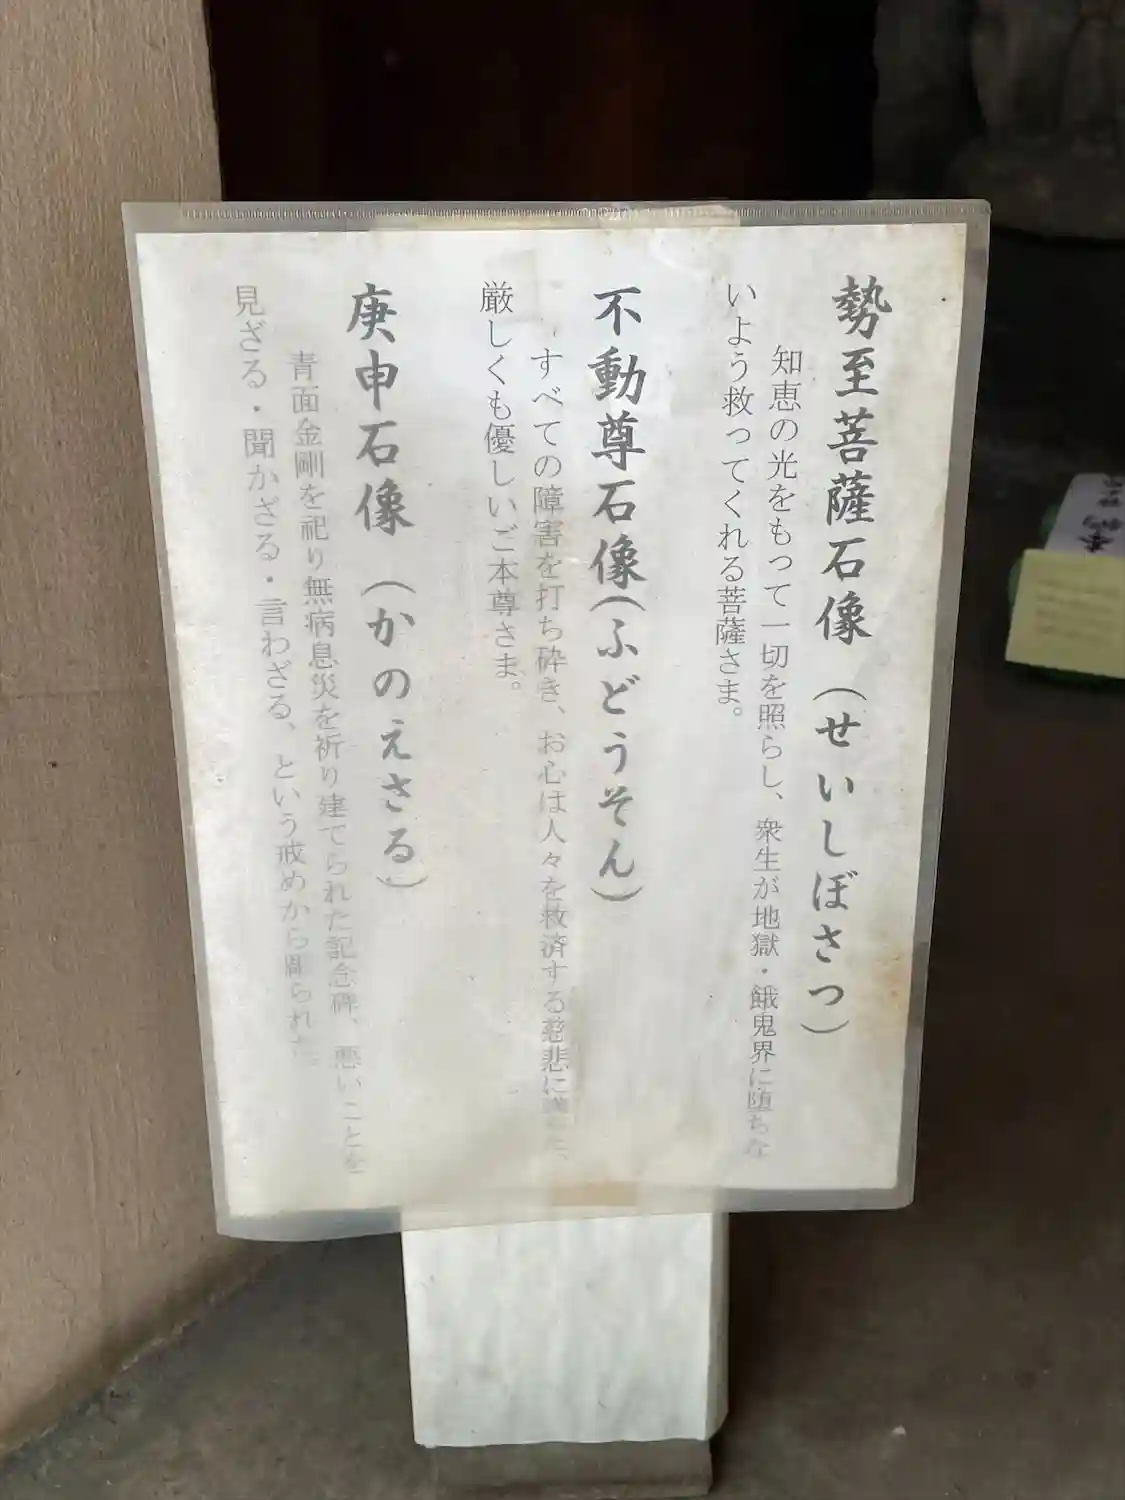 勢至菩薩石像 (せいしぼさつ)
知恵の光をもって一切を照らし、衆生が地獄・餓鬼界に堕ちな
いよう救ってくれる菩薩さま。
不動尊石像(ふどうそん)
すべての障害を打ち砕き、お心は人々を救済する慈悲に
厳しくも優しいご本尊さま。
庚申石像 (かのえさる)
青面金剛を祀り無病息災を祈り建てられた記念碑、悪いことを
見ざる・聞かざる・言わざる、という戒めから彫られ